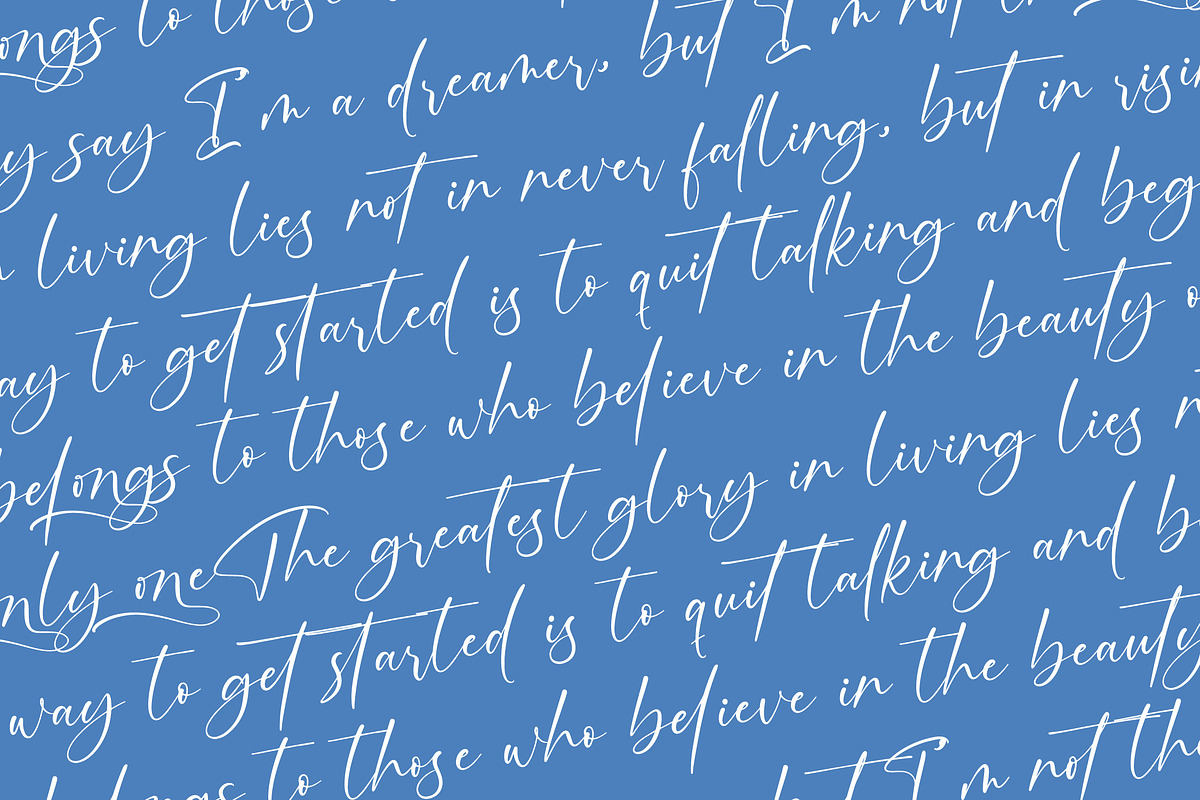 ongs to those
y say I'm a dreamer, but I'm not
living lies not in never falling, but in risin
ay to get started is to quit talking and beg
belongs to those who believe in the beauty o
nly one The greatest glory in living lies n
way to get started is to quit talking and b
belongs to those who believe in the beauty
but I'm not th